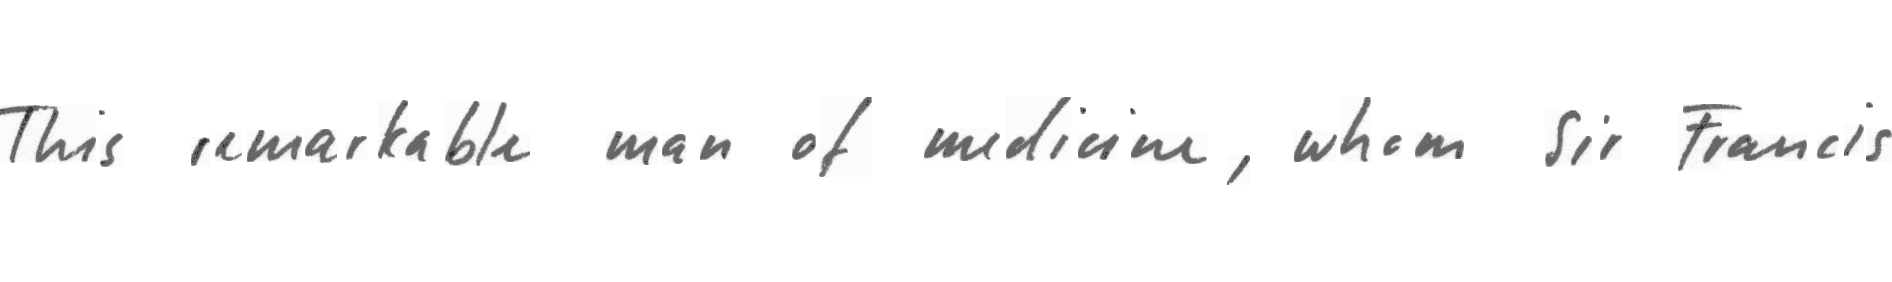 This remarkable man of medicine, whom Sir Francis